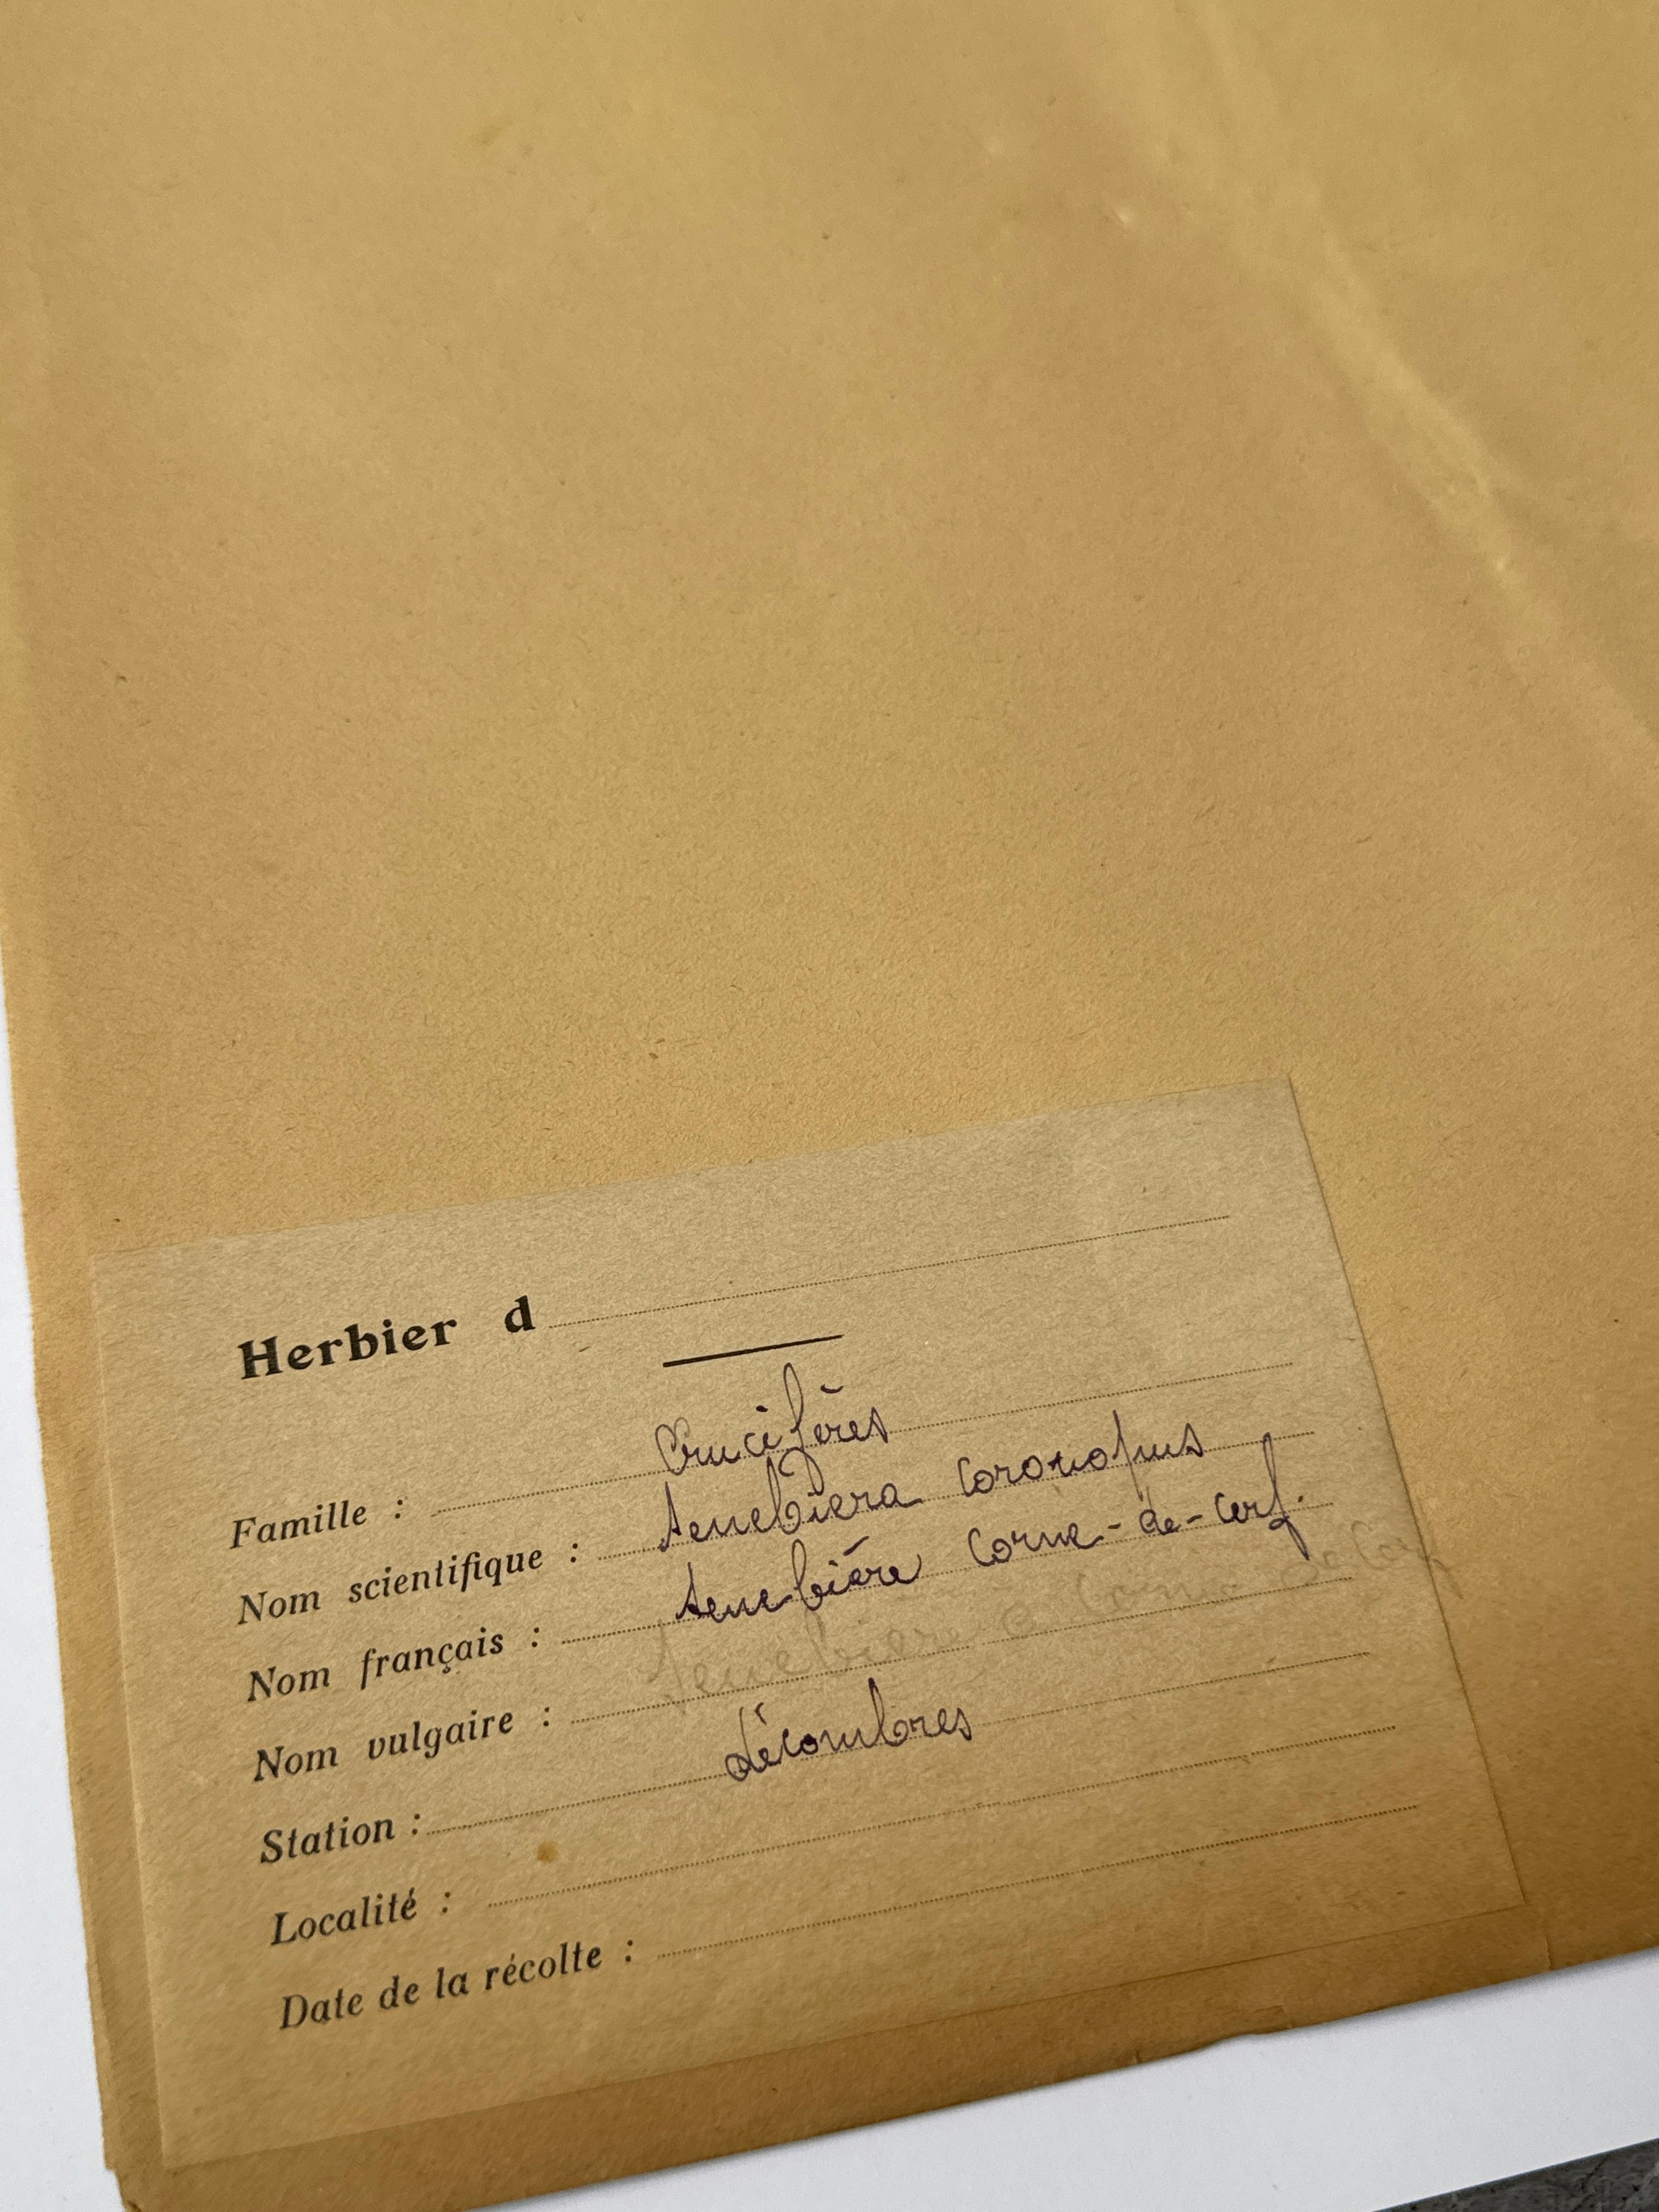 Herbier d
Famille : Crucifères
Nom scientifique : senebiera coronopus
Nom français : senebière corne-de-cerf.
Nom vulgaire : Senebière Corne de Cerf
Station : décombres
Localité :
Date de la récolte :